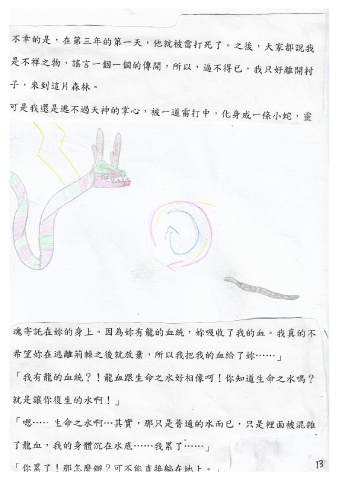 不幸的是，在第三年的第一天，他就被雷打死了。之後，大家都說我
是不祥之物，謠言一個一個的傳開，所以，逼不得已，我只好離開村
子，來到這片森林。
可是我還是逃不過天神的掌心，被一道雷打中，化身成一條小蛇，靈
魂寄託在妳的身上。因為妳有龍的血統，妳吸收了我的血。我真的不
希望妳在逃離荊棘之後就放棄，所以我把我的血給了妳……」
「我有龍的血統？！龍血跟生命之水好相像呵！你知道生命之水嗎？
就是讓你復生的水啊！」
「嗯…… 生命之水啊…其實，那只是普通的水而已，只是裡面被混雜
了龍血，我的身體沉在水底……我累了……」
「你累了！那怎麼辦？可不能直接躺在地上。」
13